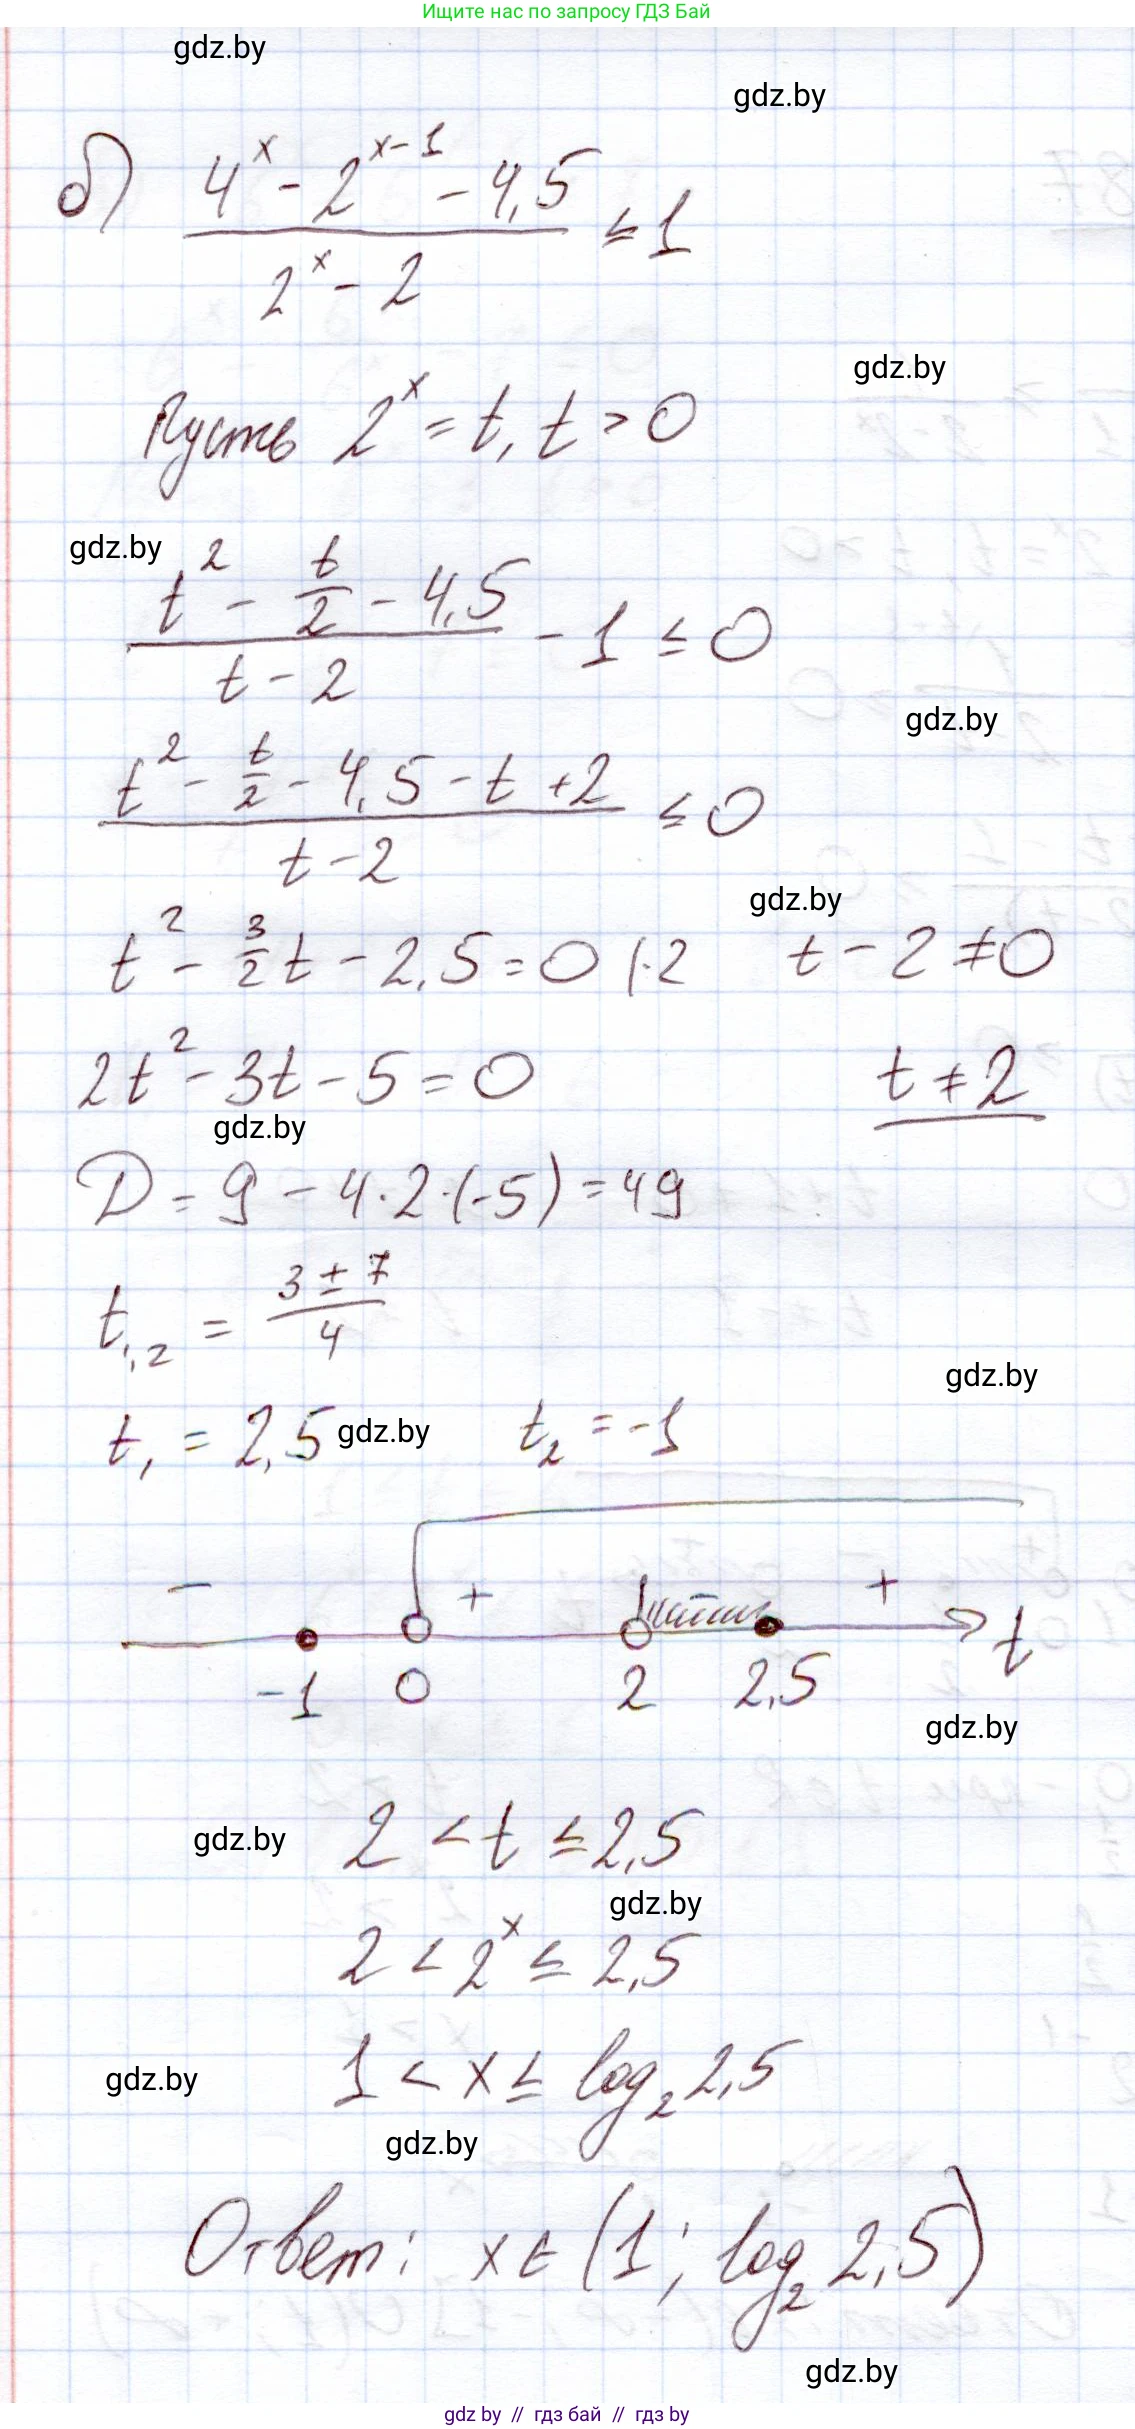 Ищите нас по запросу ГДЗ Бай
gdz.by
gdz.by
б) (4^x - 2^(x-1) - 4,5) / (2^x - 2) ≤ 1
gdz.by
Пусть 2^x = t, t > 0
gdz.by
(t^2 - t/2 - 4,5) / (t - 2) - 1 ≤ 0
gdz.by
(t^2 - t/2 - 4,5 - t + 2) / (t - 2) ≤ 0
gdz.by
t^2 - 3/2 t - 2,5 = 0 |·2 t - 2 ≠ 0
2t^2 - 3t - 5 = 0 t ≠ 2
gdz.by
D = 9 - 4·2·(-5) = 49
t1,2 = (3 ± 7) / 4
gdz.by
t1 = 2,5 gdz.by t2 = -1
- + - +
-1 0 2 2,5 t
gdz.by
2 < t ≤ 2,5
gdz.by
gdz.by
2 < 2^x ≤ 2,5
1 < x ≤ log2 2,5
gdz.by
gdz.by
Ответ: x ∈ (1; log2 2,5)
gdz.by
gdz by // гдз бай // гдз by